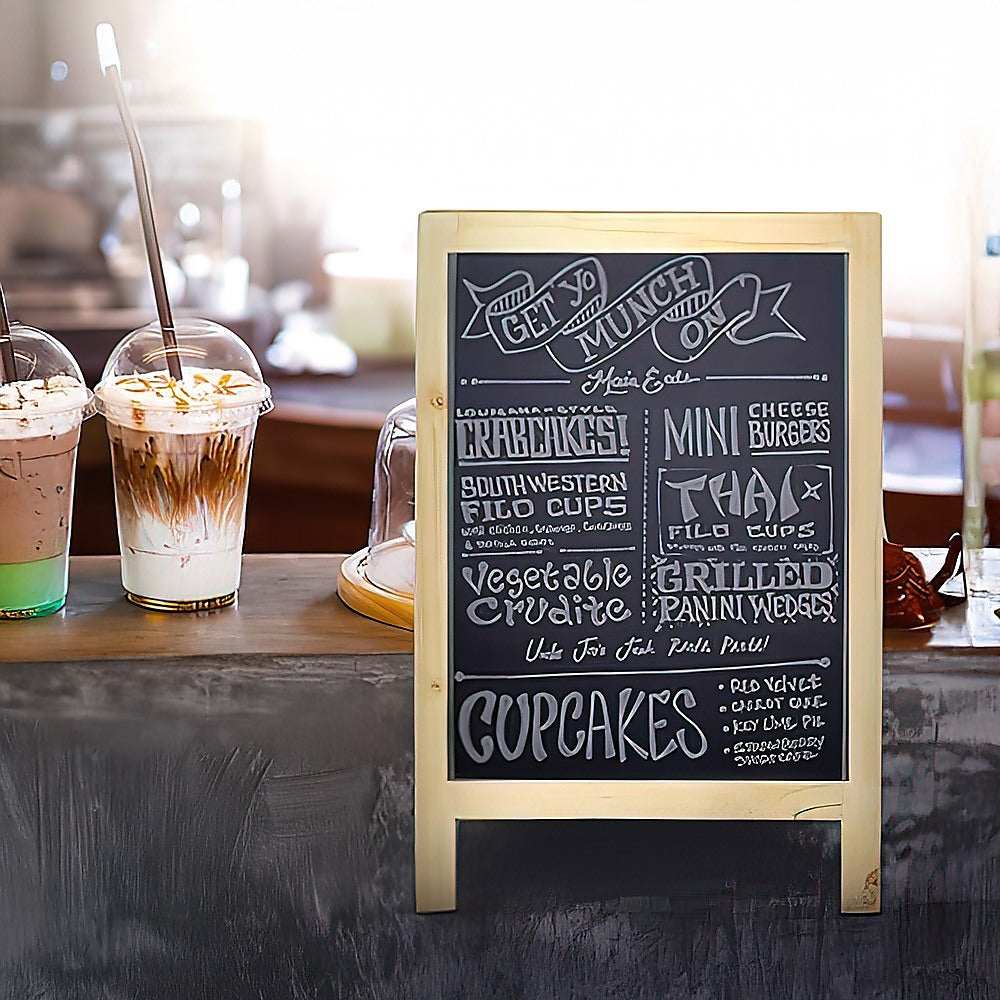 GET YO
MUNCH
ON
Main Eats
LOUISIANA-STYLE
CRABCAKES!
SOUTHWESTERN
FILO CUPS
Vegetable
Crudite
MINI CHEESE
BURGERS
THAI
FILO CUPS
GRILLED
PANINI WEDGES
Uncle Joe's Pasta!
CUPCAKES
• RED VELVET
• CARROT CAKE
• KEY LIME PIE
• STRAWBERRY
SHORTCAKE